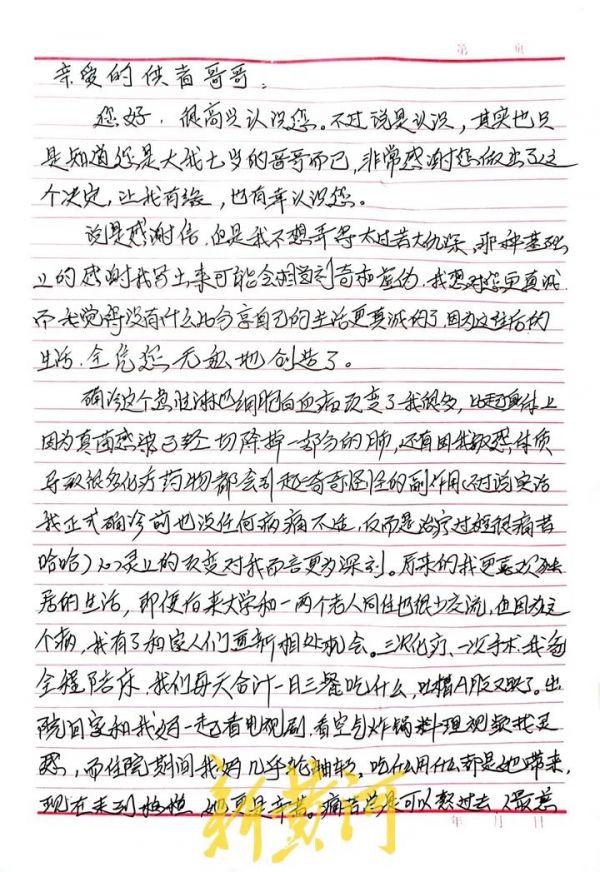 第 页
亲爱的供者哥哥：
您好，很高兴认识您。不过说是认识，其实也只
是知道您是大我七岁的哥哥而已，非常感谢您做出了这
个决定，让我有缘，也有幸认识您。
说是感谢信，但是我不想弄得太过苦大仇深，那种基础
上的感谢我写出来可能会相当刻奇和虚伪，我想对您更真诚
而我觉得没有什么比分享自己的生活更真诚的了，因为这些后的
生活，全凭您无私地创造了。
确诊这个急性淋巴细胞白血病改变了我很多，比起身体上
因为真菌感染已经切除掉一部分的肺，还有因我敏感体质
导致很多化疗药物都会引起奇奇怪怪的副作用（不过说实话
我正式确诊前也没任何病痛不适，反而是治疗过程很痛苦
哈哈）心灵上的改变对我而言更为深刻。原来的我更喜欢独
居的生活，即便后来大学和一两个老人同住也很少交流，但因为这
个病，我有了和家人们重新相处机会。三次化疗、一次手术，我爸
全程陪床，我们每天合计一日三餐吃什么，吐槽A股又跌了。出
院回家和我妈一起看电视剧，看空气炸锅料理视频找灵
感，而住院期间我妈几乎轮轴转，吃什么用什么都是她带来，
现在来到 她更是辛苦。病苦总是可以熬过去，但最
新黄河
年 月 日